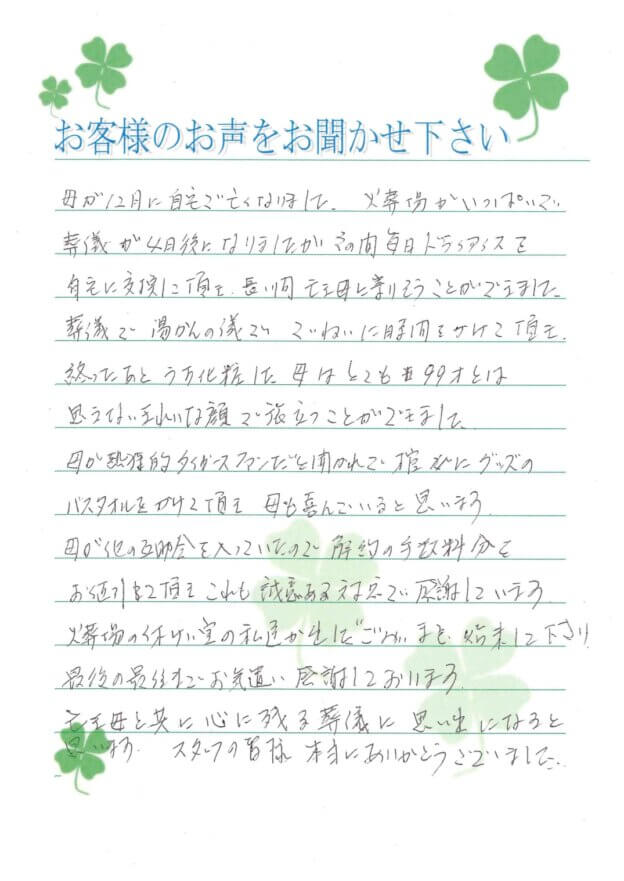 お客様のお声をお聞かせ下さい
母が12月に自宅で亡くなりました。火葬場がいっぱいで
葬儀が4日後になりましたがその間毎日ドライアイスを
自宅に交換して頂き、長い間亡き母に寄りそうことができました。
葬儀で湯かんの儀でていねいに時間をかけて頂き、
終ったあとうす化粧した母はとても99才とは
思えないきれいな顔で旅立つことができました。
母が熱狂的タイガースファンだと聞かれて棺にグッズの
バスタオルをかけて頂き母も喜んでいると思います。
母が他の互助会を入っていたので解約の手数料分を
お値引きして頂きこれも誠意ある対応で感謝しています。
火葬場の休けい室の私達が出したごみまで始末して下さり
最後の最後までお気遣い感謝しております。
亡き母と共に心に残る葬儀に思い出になると
思います。スタッフの皆様本当にありがとうございました。